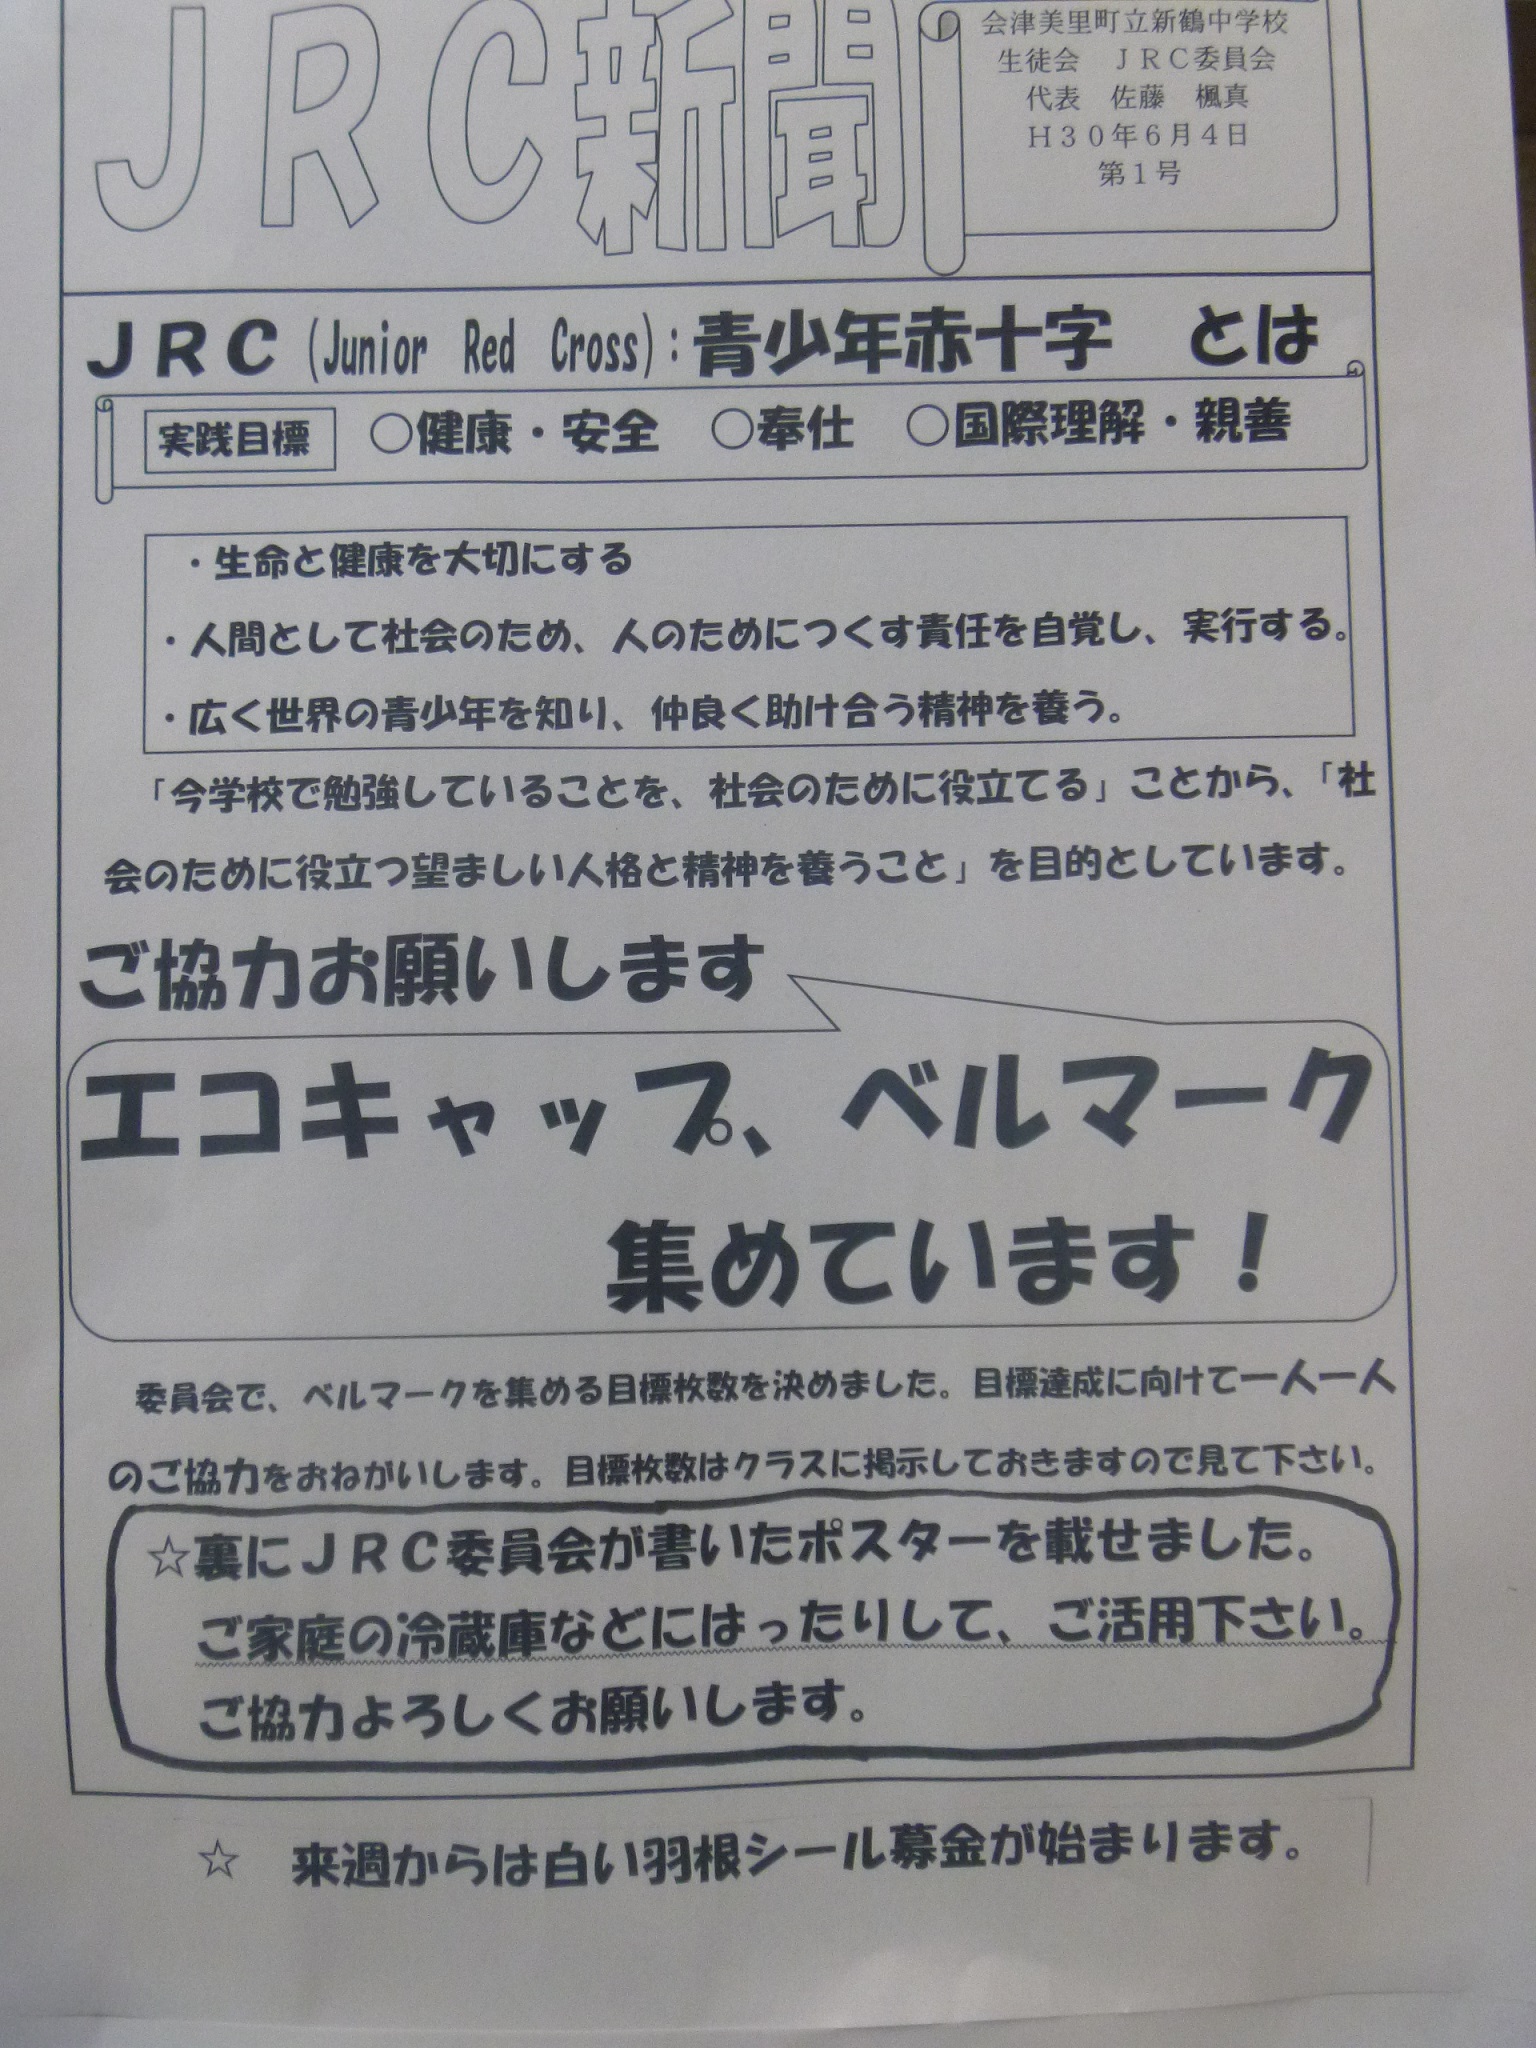 JRC新聞
会津美里町立新鶴中学校
生徒会　ＪＲＣ委員会
代表　佐藤　楓真
Ｈ３０年６月４日
第１号
ＪＲＣ(Junior Red Cross):青少年赤十字　とは
実践目標　○健康・安全　○奉仕　○国際理解・親善
・生命と健康を大切にする
・人間として社会のため、人のためにつくす責任を自覚し、実行する。
・広く世界の青少年を知り、仲良く助け合う精神を養う。
「今学校で勉強していることを、社会のために役立てる」ことから、「社
会のために役立つ望ましい人格と精神を養うこと」を目的としています。
ご協力お願いします
エコキャップ、ベルマーク
集めています！
委員会で、ベルマークを集める目標枚数を決めました。目標達成に向けて一人一人
のご協力をおねがいします。目標枚数はクラスに掲示しておきますので見て下さい。
☆裏にＪＲＣ委員会が書いたポスターを載せました。
ご家庭の冷蔵庫などにはったりして、ご活用下さい。
ご協力よろしくお願いします。
☆　来週からは白い羽根シール募金が始まります。